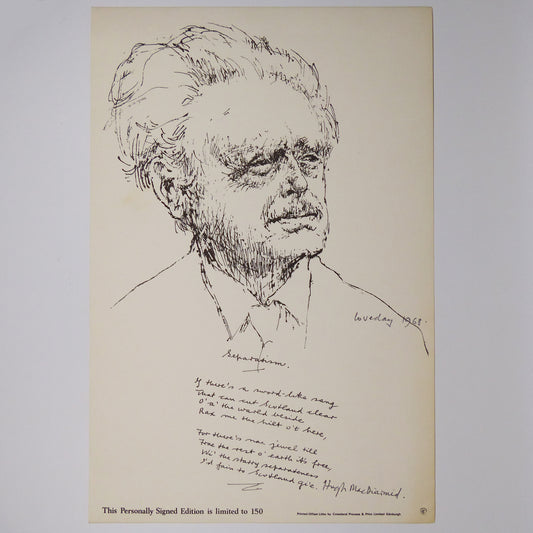 Loveday 1968.
Separatism.
If there's a sword-like sang
That can cut Scotland clear
O' a' the warld beside
Rax me the hilt o't here,
For there's nae jewel till
Frae the rest o' earth it's free,
Wi' the starry separateness
I'd fain to Scotland gi'e. Hugh MacDiarmid.
This Personally Signed Edition is limited to 150
Printed Offset Litho by Crossland Process & Print Limited Edinburgh